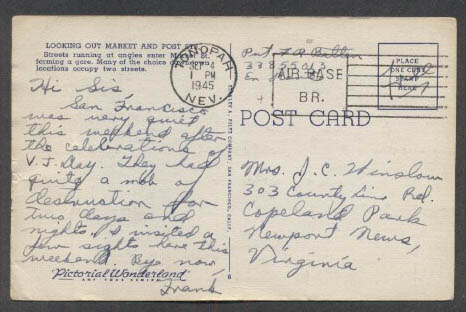 LOOKING OUT MARKET AND POST STS.
Streets running at angles enter Market St.
forming a gore. Many of the choice
locations occupy two streets.
Hi Sis,
San Francisco
was very quiet
this weekend after
the celebrations of
V.J. Day. They had
quite a mob of
destruction for
two days and
nights. I visited a
few sights here this
weekend. Bye now,
Frank
Pictorial Wonderland
ART TONE SERIES
TONOPAH
1 PM
1945
NEV.
AIR BASE
BR.
33855013
PLACE
ONE CENT
STAMP
HERE
Free
POST CARD
Mrs. J. C. Winslow
303 County Line Rd.
Copeland Park
Newport News,
Virginia